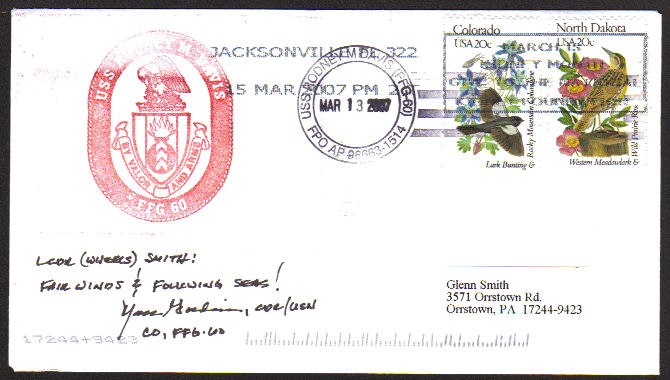 Colorado
USA 20c
Rocky Mountain Columbine
Lark Bunting &
North Dakota
USA 20c
Wild Prairie Rose
Western Meadowlark &
JACKSONVILLE FL 322
15 MAR 2007 PM 2
MARCH IS
MONTH
USS RODNEY M DAVIS (FFG-60)
MAR 13 2007
FPO AP 96663-1514
USS
BY VALOR AND ARMS
FFG 60
LCDR (WHEELS) SMITH!
FAIR WINDS & FOLLOWING SEAS!
CDR/USN
CO, FFG-60
Glenn Smith
3571 Orrstown Rd.
Orrstown, PA 17244-9423
17244+9423